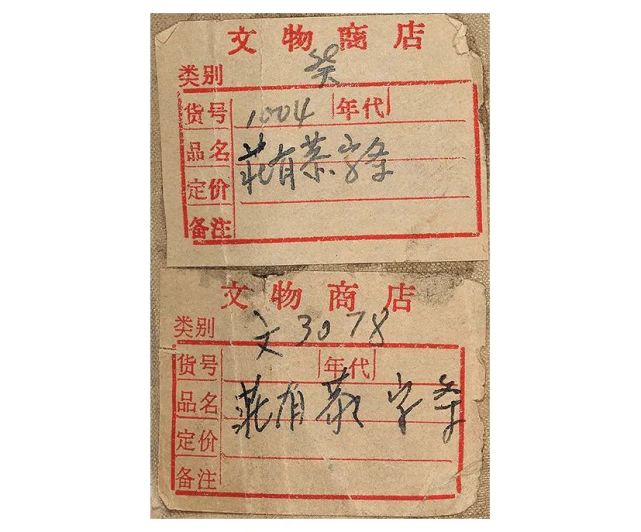 文物商店
类别
货号 1004 年代
品名 莊有恭字条
定价
备注
文物商店
类别 文3078
货号 年代
品名 莊有恭字条
定价
备注